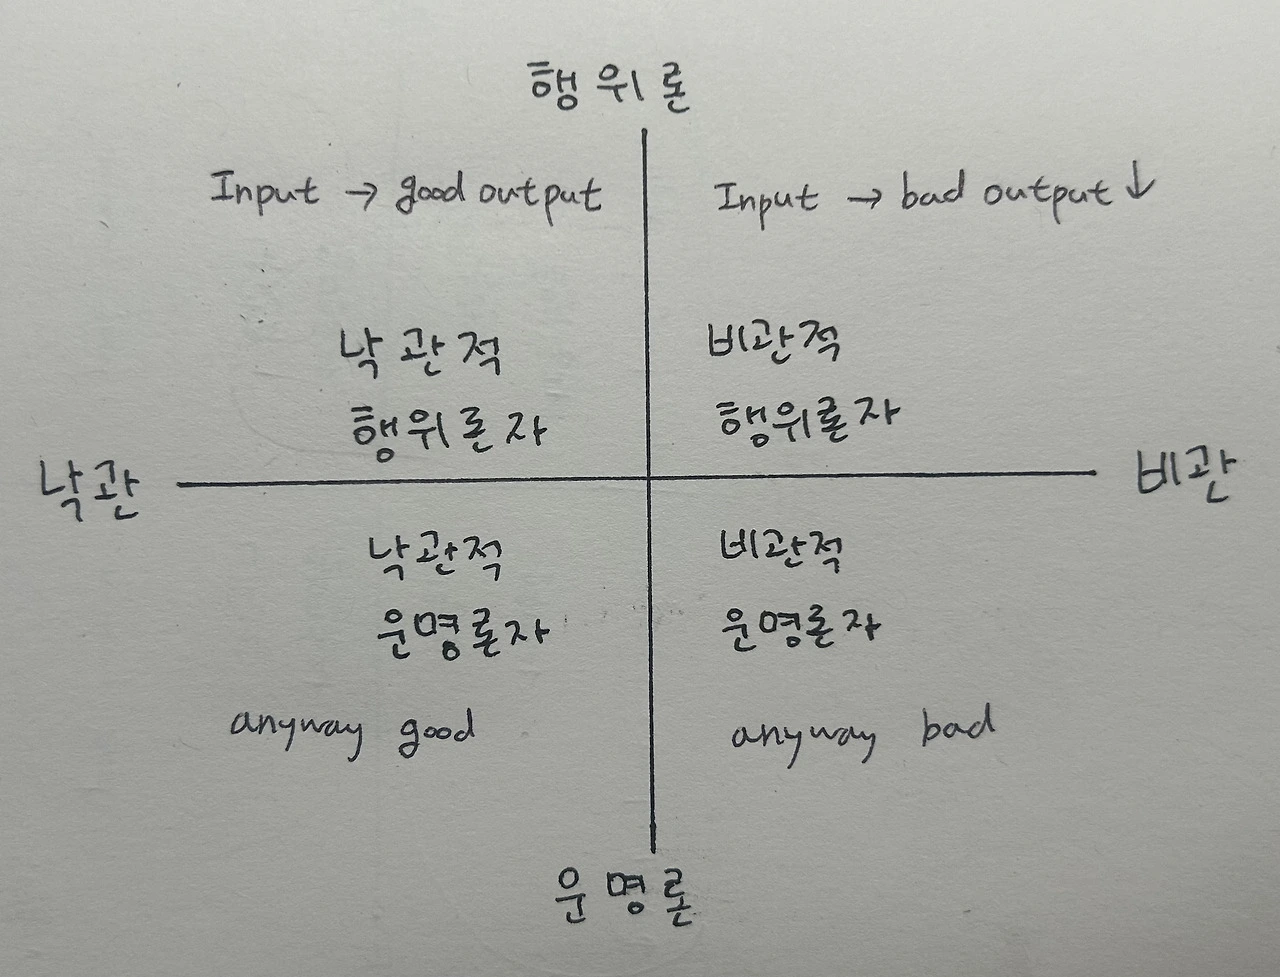 행위론
Input → good output
Input → bad output ↓
낙관적
행위론자
비관적
행위론자
낙관
비관
낙관적
운명론자
비관적
운명론자
anyway good
anyway bad
운명론